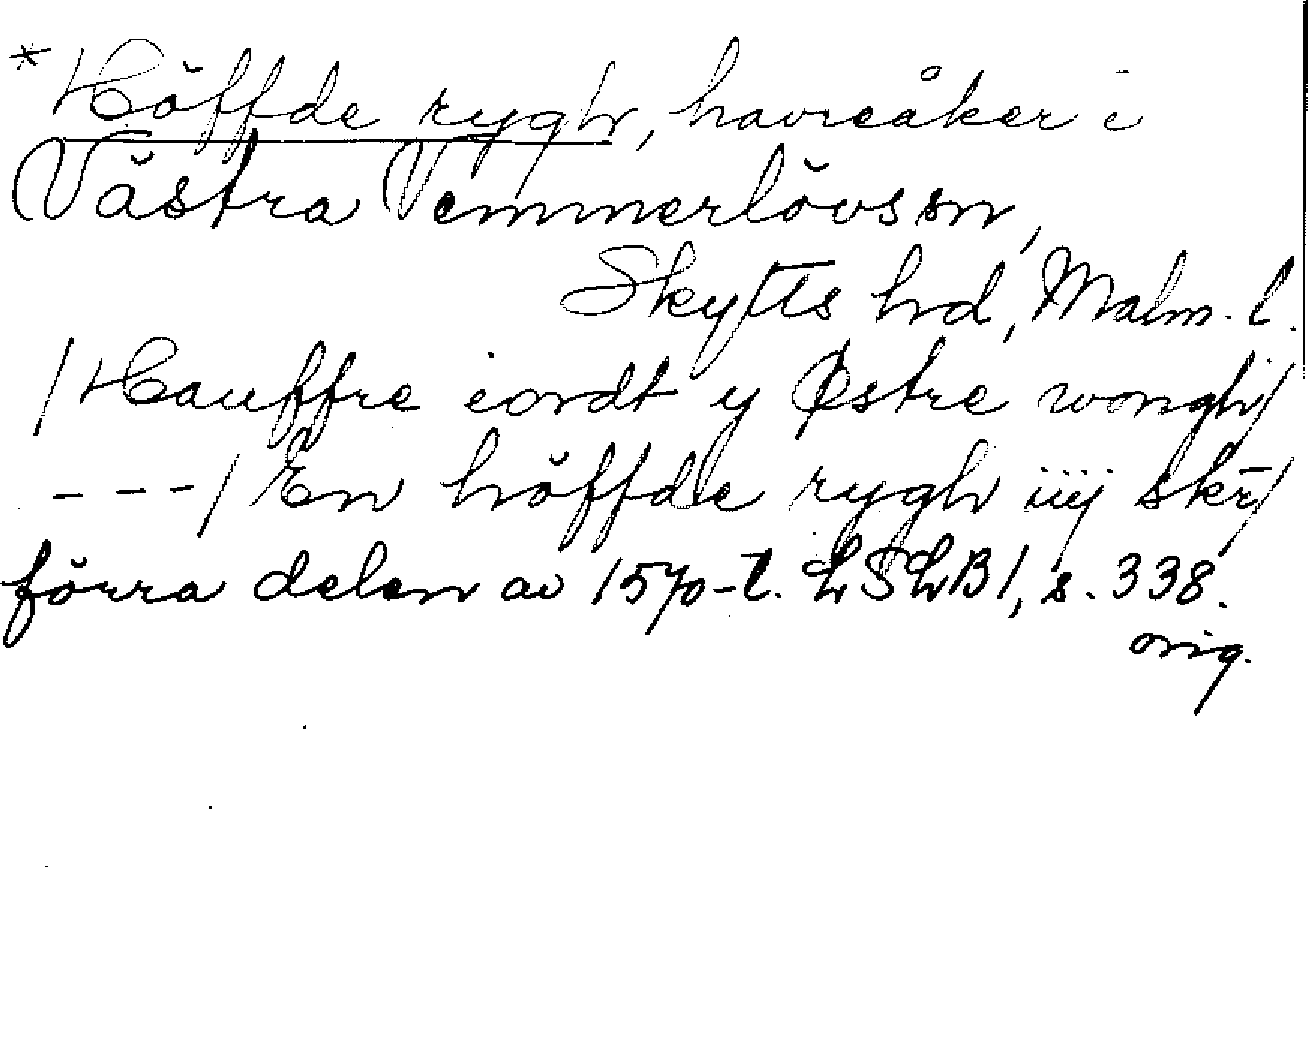 *Höffde rygh, havreåker i
Västra Vemmerlövs sn,
Skytts hd, Malm. l.
/Hauffre iordt y Østre wongh/
---/ En höffde rygh iiij skr̄/
förra delen av 1570-t. LSLB1, s. 338.
orig.